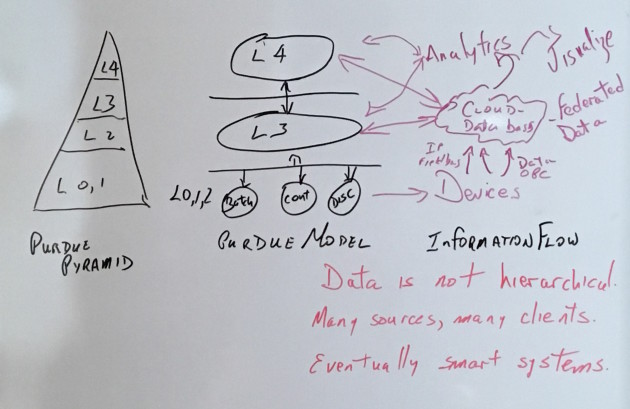 L4
L3
L 2
L 0,1
PURDUE
PYRAMID
L 4
L.3
L0,1,2
Batch
Cont
Disc
PURDUE MODEL
Analytics
Visualize
CLOUD-
Data bases
Federated
Data
IP
Fieldbus
Data
OPC
Devices
INFORMATION FLOW
Data is not hierarchical.
Many sources, many clients.
Eventually smart systems.